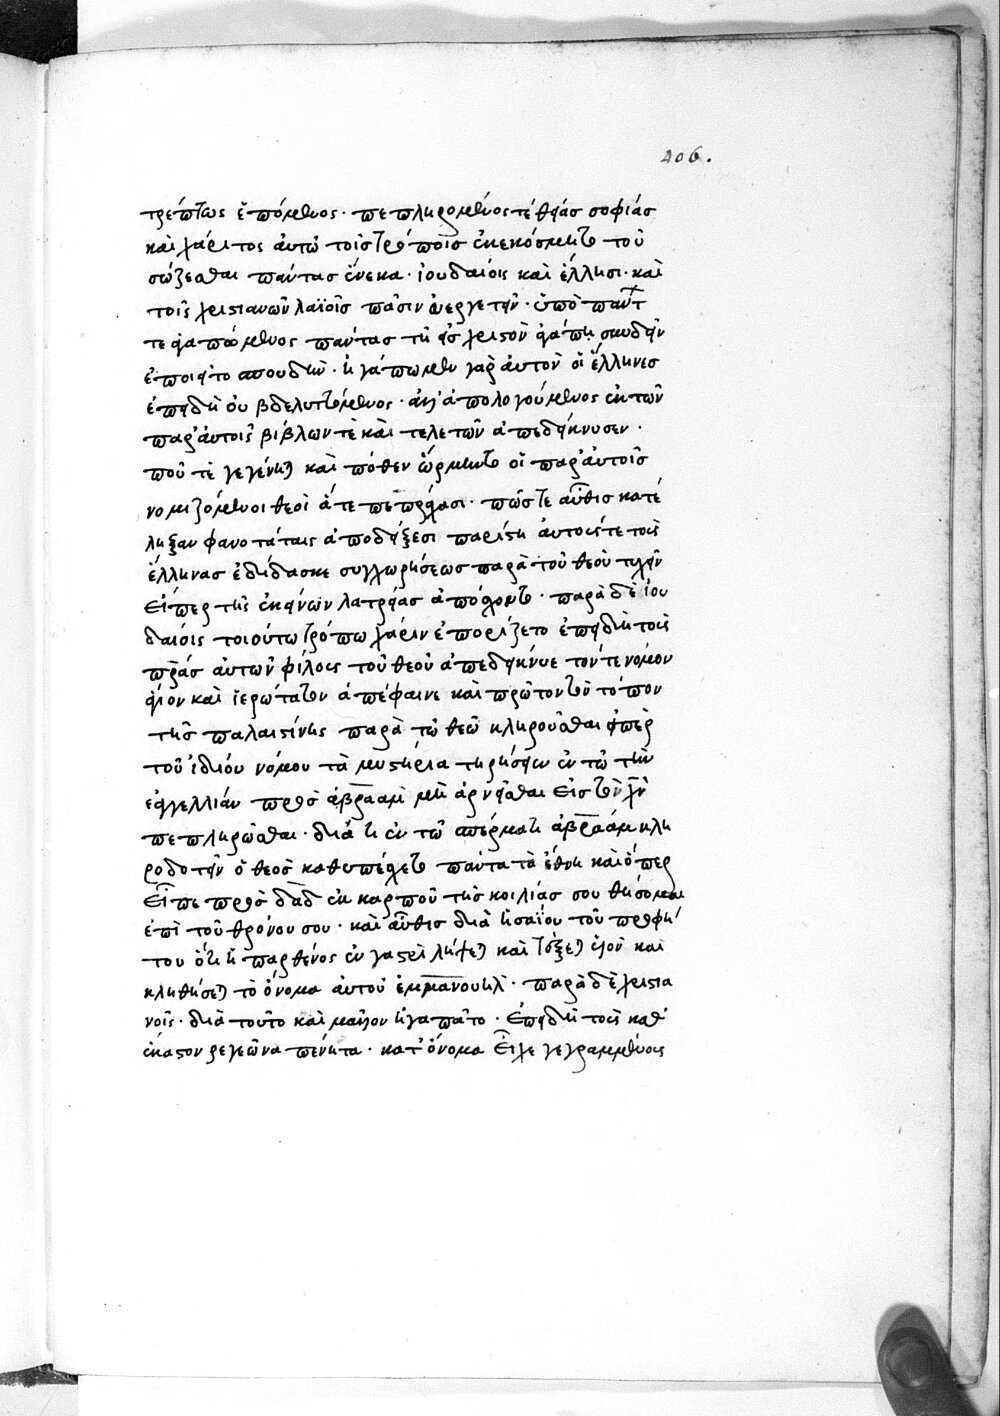 206.
τρέπτως ἑπόμενος· πεπληρομένος τέ θείας σοφίας
καὶ χάριτος ἀυτῶ τοῖς τρόποις ἐκεκόσμητο τοῦ
σώζεσθαι πάντας ἕνεκα· ἰουδαίοις καὶ ἕλλησι· καὶ
τοῖς χριστιανῶν λαϊοῖς πᾶσιν ἐυεργετεῖν· ὑπὸ παντ
τε ἀγαπώμενος πάντας τῆ εἰς χριστὸν ἀγάπη σπένδειν
ἐποιεῖτο σπουδὴν· ἠγάπωμεν γὰρ ἀυτὸν οἱ ἕλληνες
ἐπειδὴ ὀυ βδελυττόμενος· ἀλλ' ἀπολογούμενος ἐκ τῶν
παρ' ἀυτοῖς βίβλων τὲ καὶ τελετῶν ἀπεδείκνυσεν·
ποῦ τὲ γεγένηται καὶ πόθεν ὥρμηντο οἱ παρ' ἀυτοῖς
νομιζόμενοι θεοὶ ἅ τε πεπράχασι· πῶς τε αὖθις κατέ
ληξαν φανοτάταις ἀποδείξεσι παρίστη ἀυτοις τε τοὺς
ἕλληνας ἐδίδασκε συγχωρήσεως παρὰ τοῦ θεοῦ τυχεῖν
εἴπερ τῆς ἐκείνων λατρείας ἀπόσχοντο· παρὰ δὲ ἰου
δαίοις τοιούτω τρόπω χάριν ἐπορίζετο ἐπειδὴ τοὺς
πρας ἀυτῶν φίλους τοῦ θεοῦ ἀπεδείκνυε τόν τε νόμον
ἅγιον καὶ ἱερώτατον ἀπέφαινε καὶ πρῶτον τὸν τόπον
τῆς παλαιστίνης παρὰ τῶ θεῶ κληροῦσθαι εἴπερ
τοῦ ἰδίου νόμου τὰ μυστήρια τηρήσειεν ἐν τῶ τὴν
ἐπαγγελλίαν πρὸς ἀβραὰμ μὴ ἀρνεῖσθαι εἰς τὸν χν
πεπληρῶσθαι· διότι ἐν τῶ σπέρματι ἀβραὰμ κλη
ροδοτεῖν ὁ θεὸς καθυπέσχετο πάντα τὰ ἔθνη καὶ ὅπερ
εἶπε πρὸς δαδ ἐκ καρποῦ τῆς κοιλίας σου θήσομαι
ἐπὶ τοῦ θρόνου σου· καὶ αὖθις διὰ ἠσαΐου τοῦ προφή
του ὅτι ἡ παρθένος ἐν γαστρὶ λήψεται καὶ τέξεται υἱὸν καὶ
κληθήσεται τὸ ὄνομα ἀυτοῦ ἐμμανουηλ· παρὰ δὲ χριστια
νοῖς· διὰ τοῦτο καὶ μᾶλλον ἠγαπᾶτο· ἐπειδὴ τοὺς καθ'
ἕκαστον ρεγεῶνα πένητα· κατ' ὄνομα εἶχε γεγραμμένους